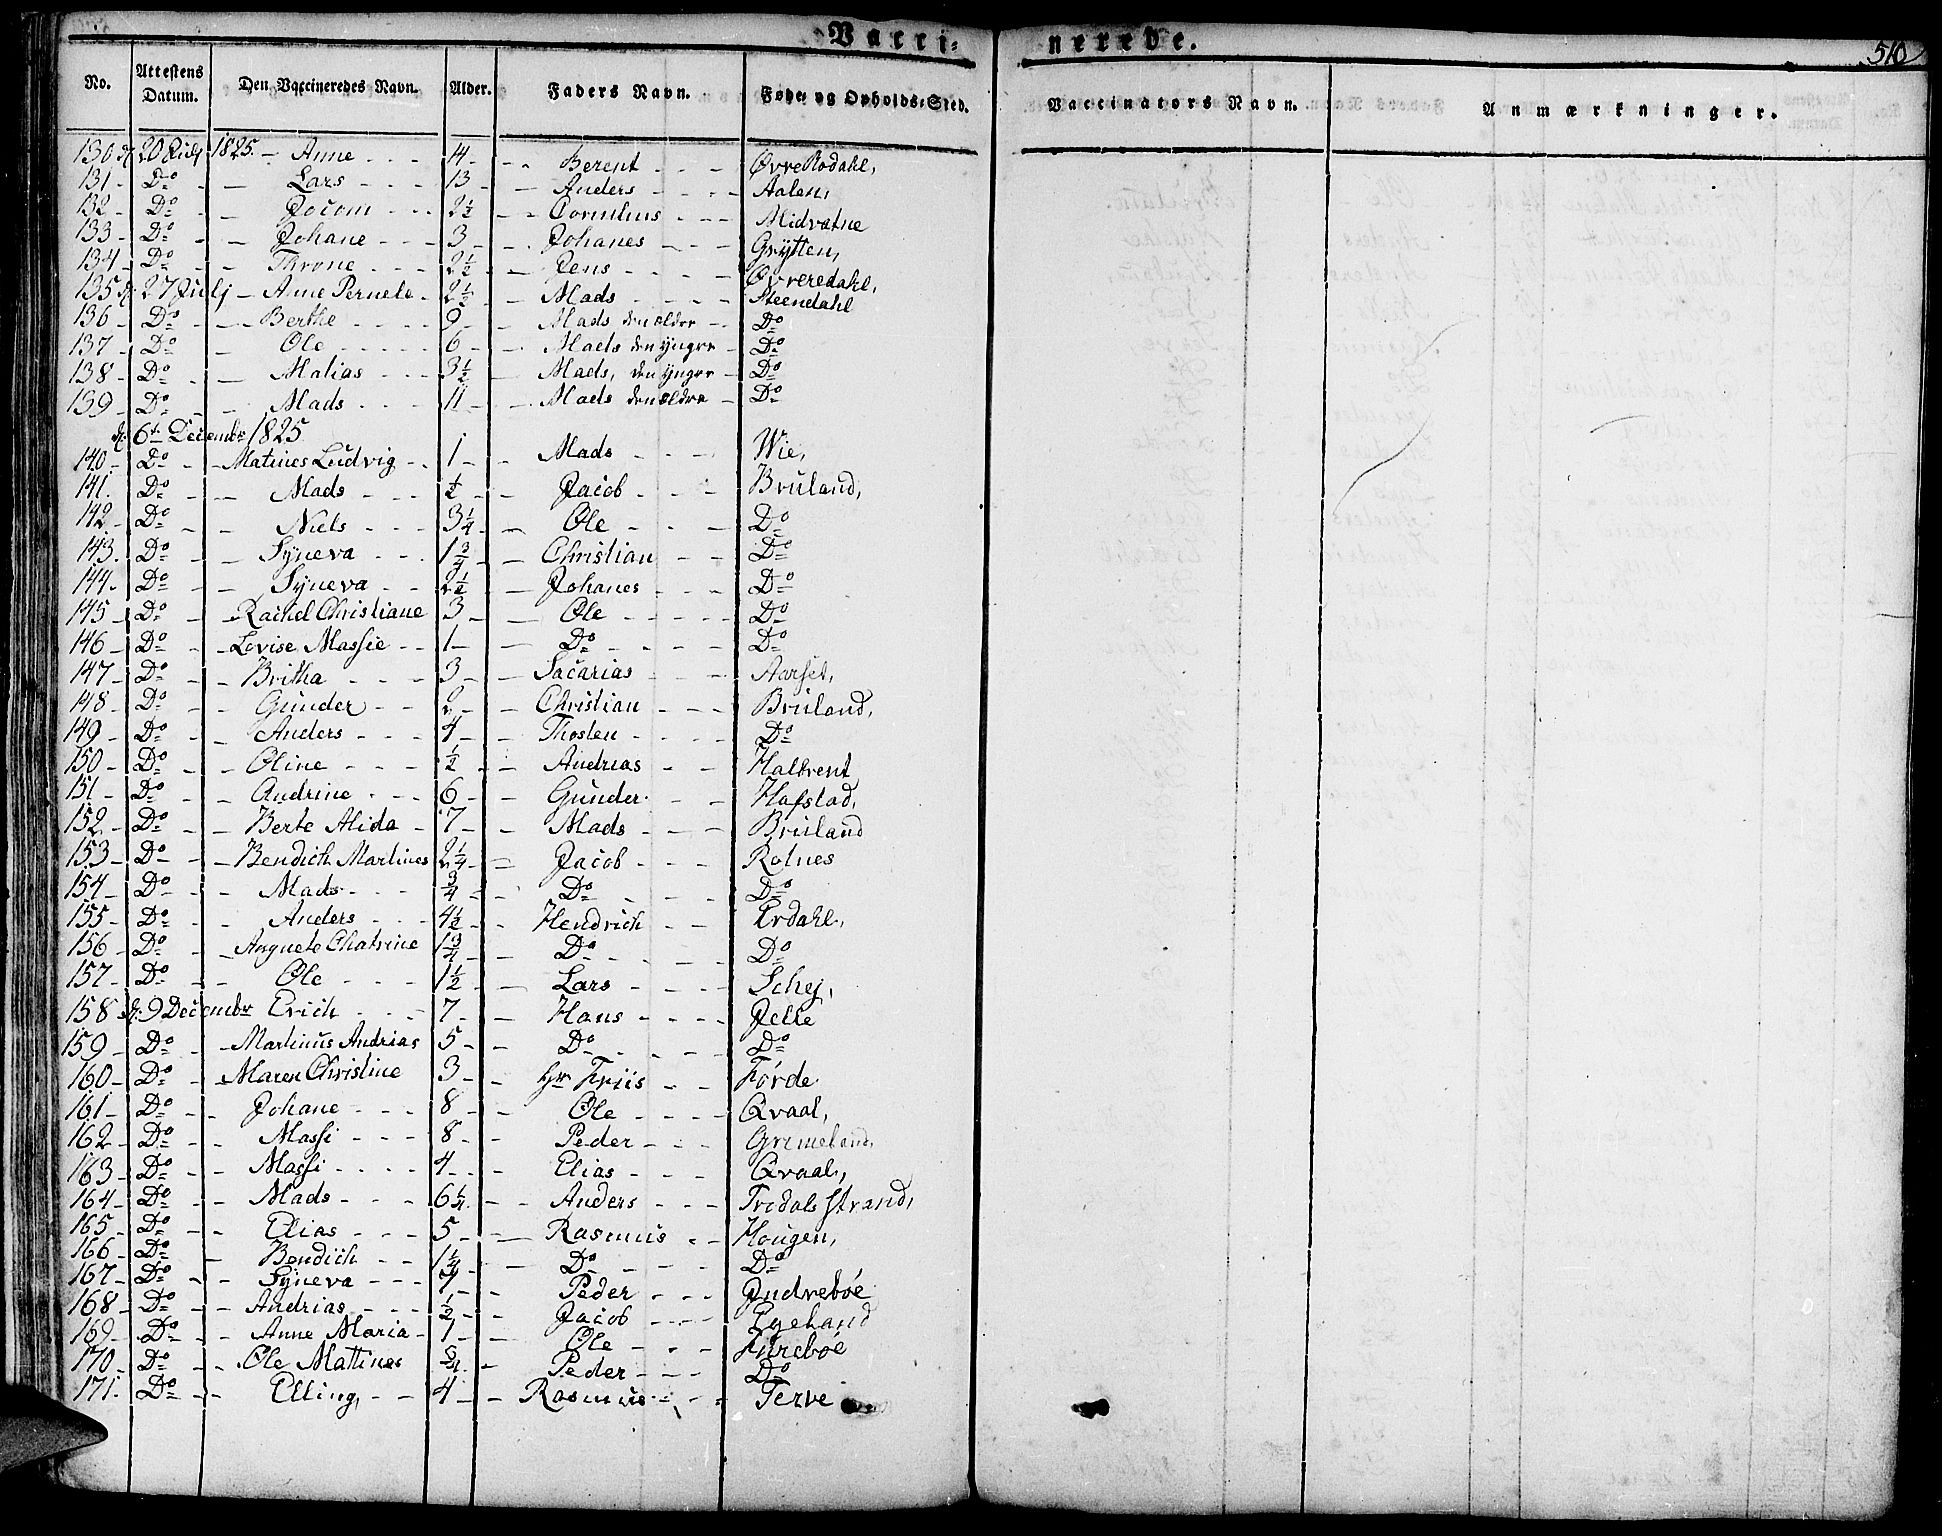 Vacci-
nerede.
510
No. Attestens Datum. Den Vaccineredes Navn. Alder. Faders Navn. Føde- og Opholds-Sted. Vaccinators Navn. Anmærkninger.
130 d: 20 Julj 1825. - Anne - - - 14 - - - Berent - - - ØvreRodahl,
131 - Do - - Lars - - - 13 - - Anders - - - Aalen,
132 - Do - - Jocom - - - 2½ - - Cornilius - - - Midvatne
133 - Do - - Johane - - - 3 - - Johanes - - - Grÿtten,
134 - Do - - Throne - - - 2½ - - Jens - - - Øvreredahl,
135 d: 27 Julj - Anne Pernele - 2½ - - Mads - - - Steendahl
136 - Do - - Berthe - - - 9 - - Mads den ældre - Do
137 - Do - - Ole - - - 6 - - Mads den ÿngre - Do
138 - Do - - Malias - - - 3½ - - Mads, den ÿngre - Do
139 - Do - - Mads - - - 11 - - Mads den ældre - Do
d: 6te Decembr 1825
140 - Do - - Matines Ludvig - - 1 - - Mads - - - Wie,
141. Do - - Mads - - - ½ - - Jacob - - - Brüland,
142 - Do - - Niels - - - 3¼ - - Ole - - - Do
143 - Do - - Sÿneva - - - 1¾ - - Christian - - Do
144 - Do - - Sÿneva - - 2½ - - Johanes - - - Do
145 - Do - - Rachel Christiane 3 - - Ole - - - Do
146 - Do - - Lovise Massie - - 1 - - Do - - - Do
147 - Do - - Britha - - - 3 - - Sacarias - - - Aarset,
148 - Do - - Gunder - - 2 - - Christian - - - Brüland,
149 - Do - - Anders - - - 4 - - Thosten - - - Do
150 - Do - - Oline - - - ½ - - Andrias - - Halbrent
151 - Do - - Andrine - - - 6 - - Gunder - - Hafstad,
152 - Do - - Berte Alida - 7 - - Mads - - - Brüland
153 - Do - - Bendich Martines 2¼ - - Jacob - - - Rolnes
154 - Do - - Mads - - - ¾ - - Do - - - Do
155 - Do - - Anders - - - 4½ - - Hendrich - - Erdahl,
156 - Do - - Angnete Chatrine 1¾ - - Do - - - Do
157 - Do - - Ole - - - 1½ - - Lars - - - Schej,
158 d: 9 Decembr Erich - - - 7 - - Hans - - - Jelle
159 - Do - - Martinus Andrias 5 - - Do - - - Do
160 - Do - - Maren Christine 3 - - Hr Friis - - Førde
161 - Do - - Johane - - - 8 - - Ole - - - Qvaal,
162 - Do - - Massi - - - 8 - - Peder - - - Grimeland,
163 - Do - - Massi - - - 4 - - Elias - - - Qvaal,
164 - Do - - Mads - - - 6¼ - - Anders - - - Trodals strand,
165 - Do - - Elias - - - 5 - - Rasmus - - Hougen,
166 - Do - Bendich - - - 1¼ - - Do - - - Do
167 - Do - - Sÿneva - - - 4 - - Peder - - - Indrebøe
168 - Do - - Andrias - - - ½ - - Jacob - - - Egeland
169 - Do - - Anne Maria - 1 - - Ole - - -
170 - Do - - Ole Mattines ¾ - Peder - - - Do
171. Do - - Elling, - - 4 - - Rasmus - - - Terve